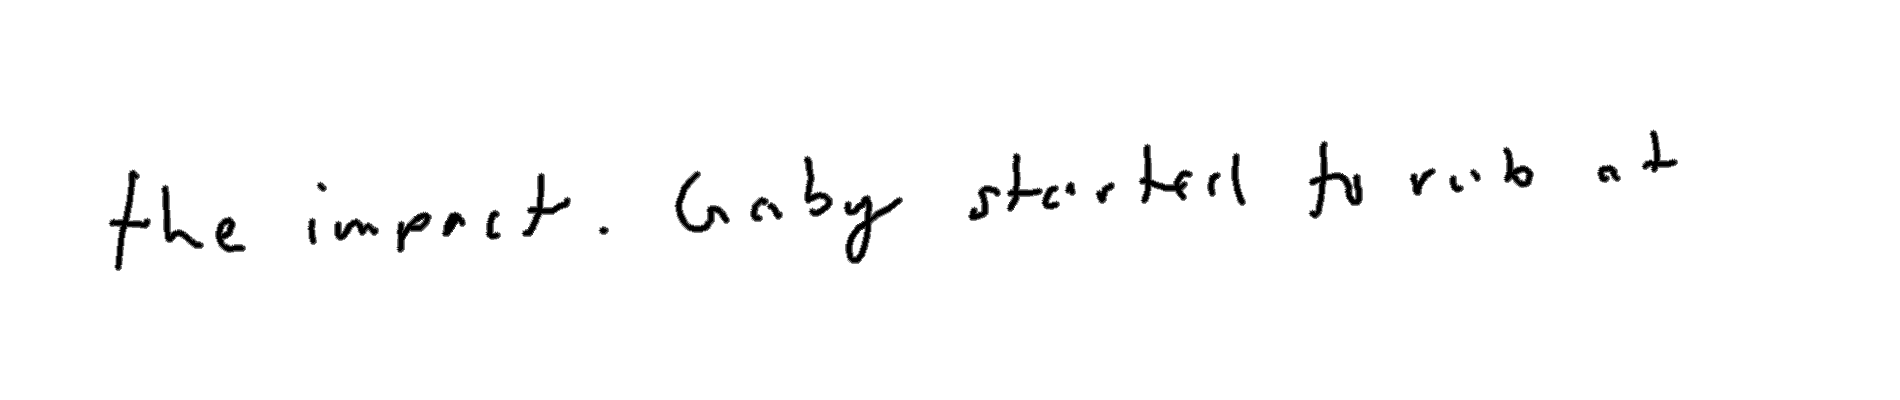 the impact. Gaby started to rub at